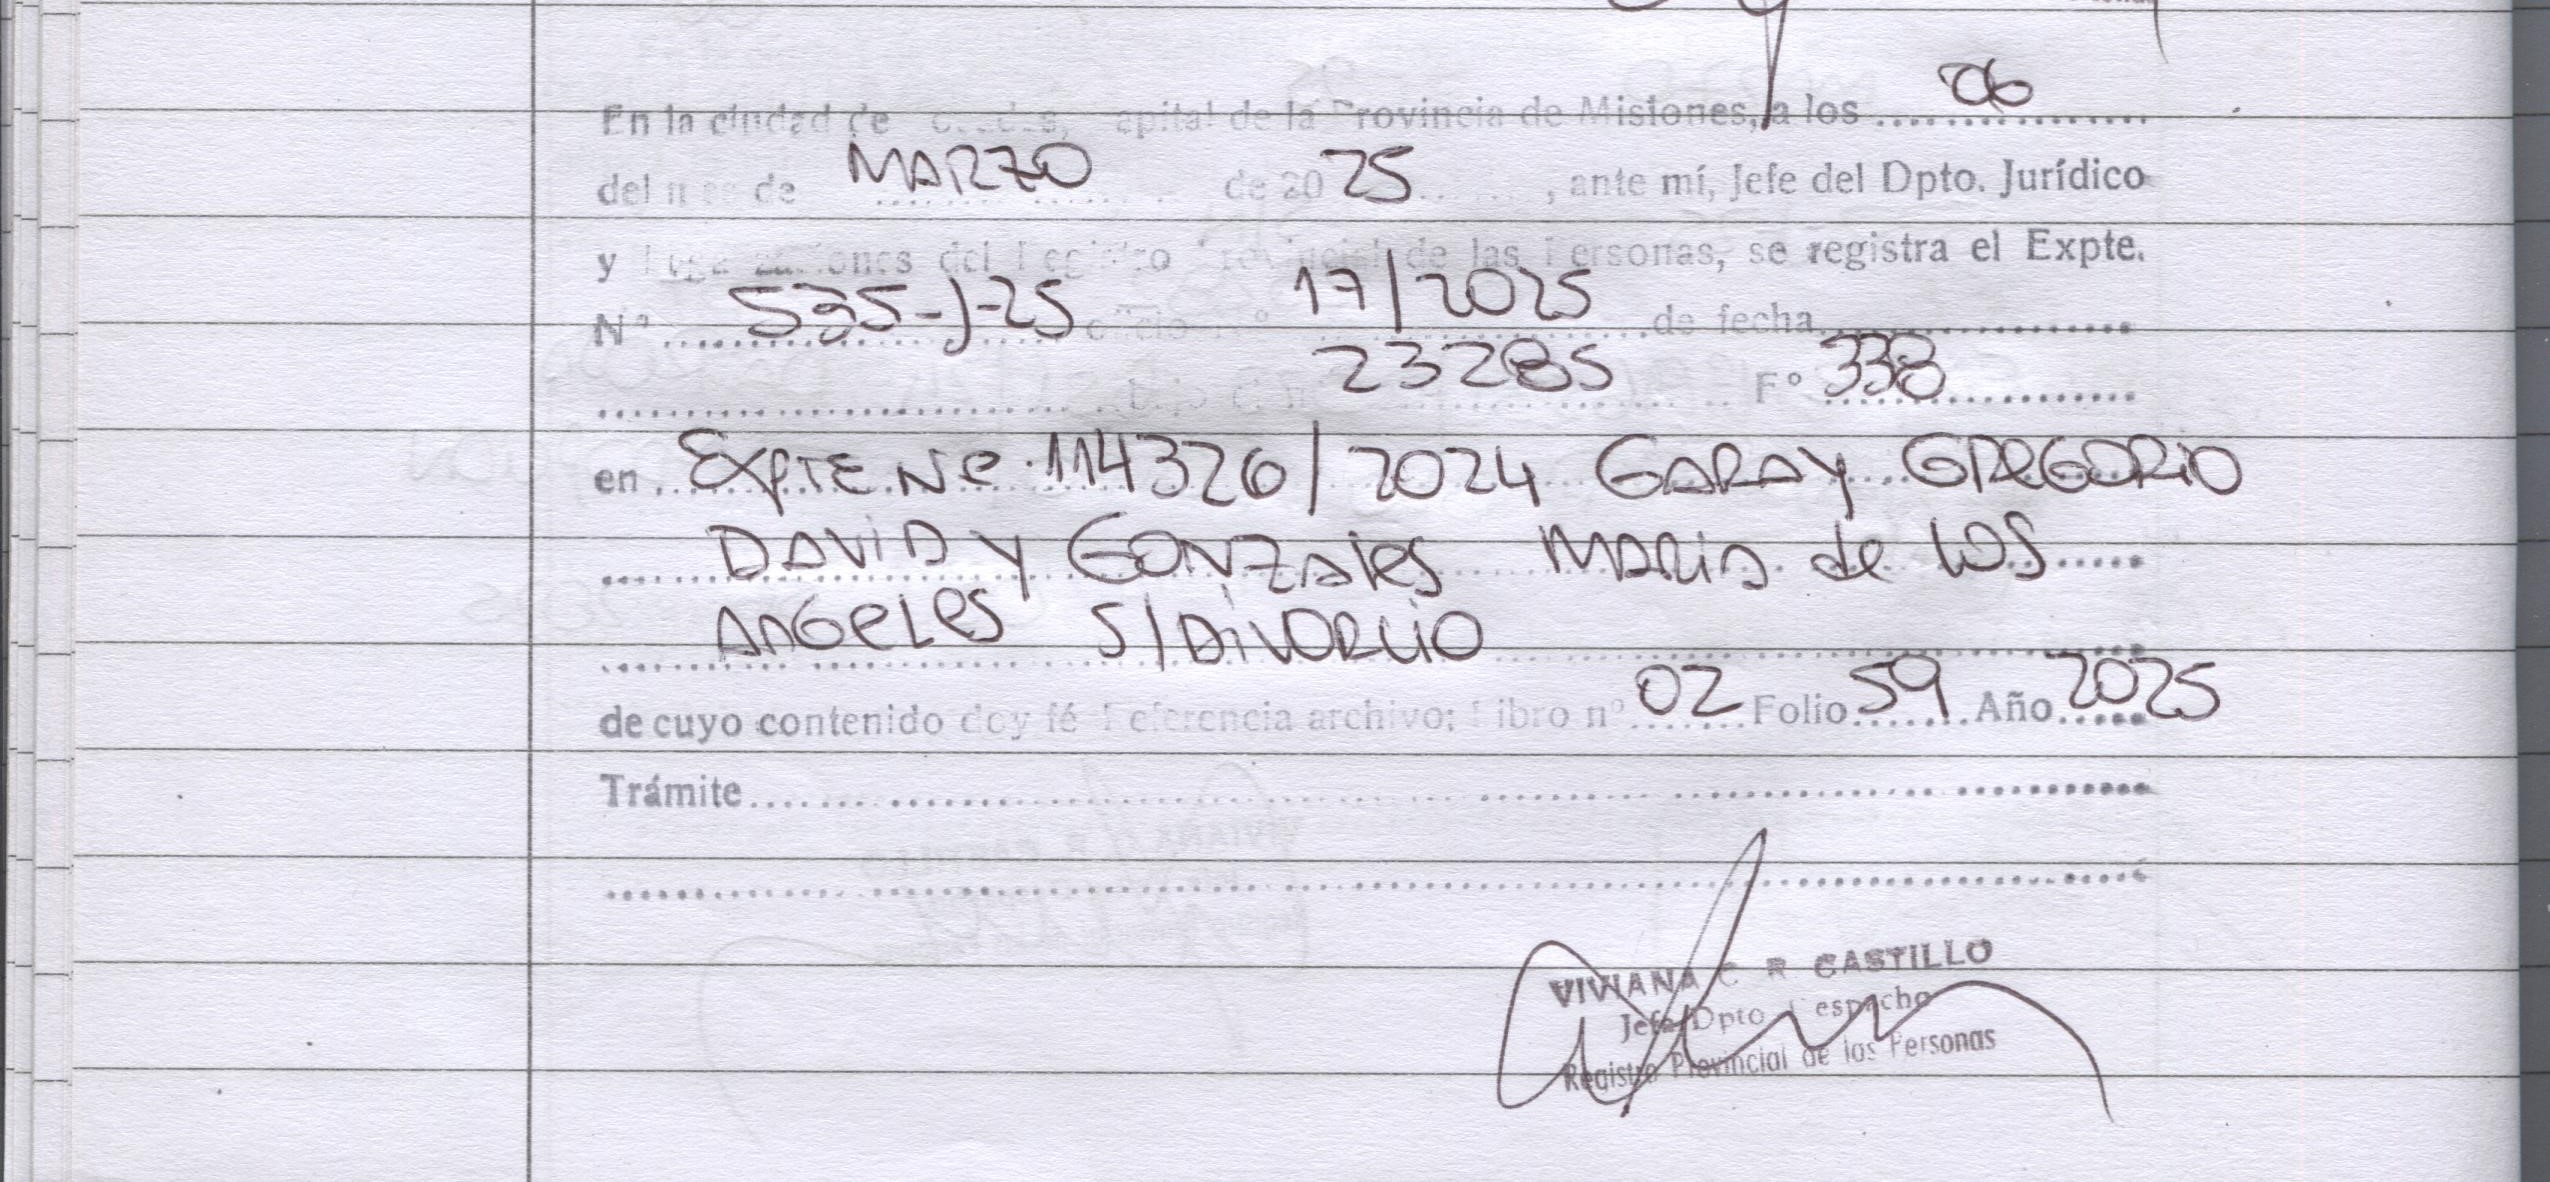 En la ciudad de apital de la Provincia de Misiones, a los 06
del mes de MARZO de 2025, ante mí, Jefe del Dpto. Jurídico
y del de las Personas, se registra el Expte.
N° 535-J-25 17/2025 de fecha
23285 F° 338
en EXPTE Nº 114326/2024 GARAY GREGORIO
DAVID Y GONZALES MARIA de LOS
ANGELES S/DIVORCIO
de cuyo contenido doy fé Referencia archivo: Libro n° 02 Folio 59 Año 2025
Trámite
VIVIANA C R CASTILLO
Jefa Dpto Despacho
Registro Provincial de las Personas